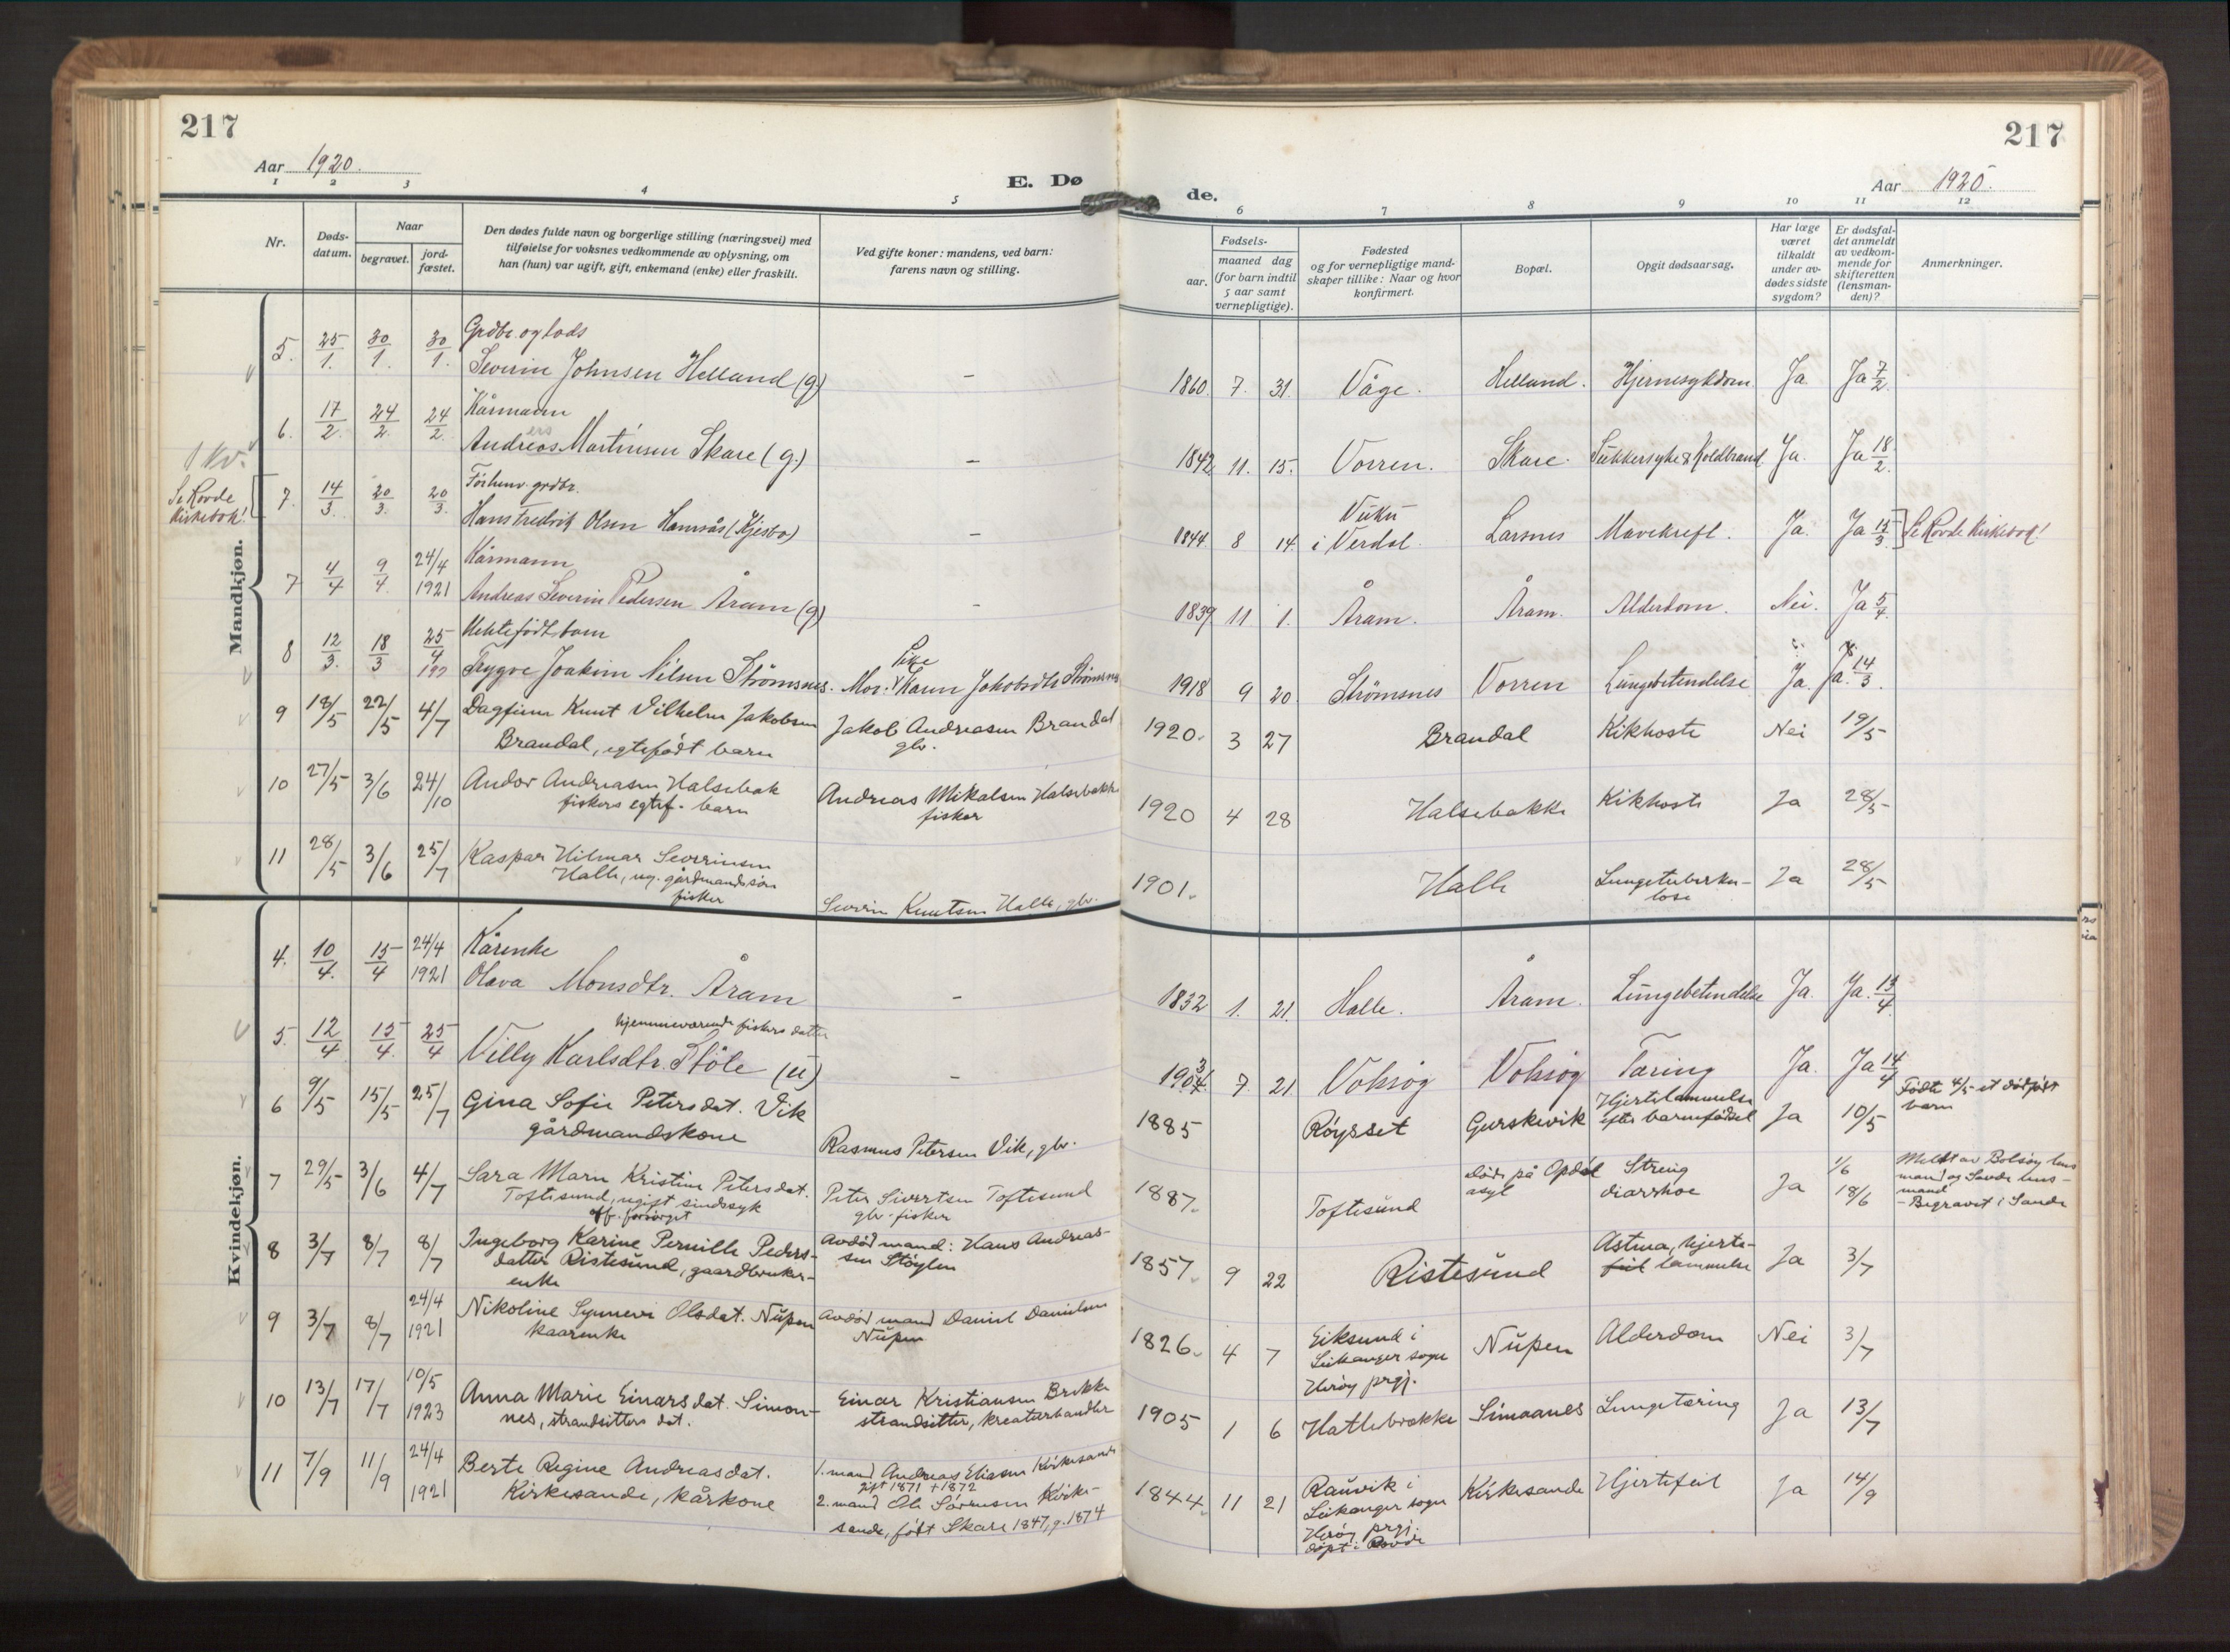 217
217
Aar 1920.
E. Dø
de.
Aar 1920.
1 2 3 4 5 6 7 8 9 10 11 12
Nr.
Døds-
datum.
Naar
begravet.
jord-
fæstet.
Den dødes fulde navn og borgerlige stilling (næringsvei) med
tilføielse for voksnes vedkommende av oplysning, om
han (hun) var ugift, gift, enkemand (enke) eller fraskilt.
Ved gifte koner: mandens, ved barn:
farens navn og stilling.
Fødsels-
aar.
maaned dag
(for barn indtil
5 aar samt
vernepligtige).
Fødested
og for vernepligtige mand-
skaper tillike: Naar og hvor
konfirmert.
Bopæl.
Opgit dødsaarsag.
Har læge
været
tilkaldt
under av-
dødes sidste
sygdom?
Er dødsfal-
det anmeldt
av vedkom-
mende for
skifteretten
(lensman-
den)?
Anmerkninger.
Mandkjøn.
5. 25/1. 30/1. 30/1. Grdbr. og lods
Severin Johnsen Helland (g.) – 1860. 7. 31. Våge. Helland. Hjernesykdom Ja Ja 7/2.
6. 17/2. 24/2. 24/2. Kårmann
Andreas Martinsen Skare (g.) – 1842 11. 15. Vorren. Skare. Sukkersyke & Koldbrand Ja. Ja 18/2.
1 kv.
Se Rovde
Kirkebok!
7. 14/3. 20/3. 20/3. Forhenv. grdbr.
Hans Fredrik Olsen Hamsås (Kjesbo) – 1844. 8 14. Vuku
i Verdal. Larsnes Mavekreft. Ja. Ja 15/3. Se Rovde Kirkebok!
7 4/4 9/4. 24/4 1921 Kårmann
Andreas Severin Pedersen Åram (g) – 1839 11 1. Åram. Åram. Alderdom. Nei. Ja 5/4.
8 12/3. 18/3 25/4 Uektefødt barn
Trygve Joakim Nilsen Strømsnes. Mor: Pike Karen Jakobsdtr Strømsnes 1918 9 20. Strømsnes Vorren Lungebetendelse Ja. Ja. 14/3.
9 18/5 22/5 4/7 Dagfinn Knut Vilhelm Jakobsen
Brandal, egtefødt barn
Jakob Andreasen Brandal
gbr.
1920. 3 27 Brandal Kikhoste Nei 19/5
10 27/5 3/6 24/10 Andor Andreasen Halsebak
fiskers egtef. barn
Andreas Mikalsen Halsebakke
fisker
1920 4 28 Halsebakke Kikhoste Ja 28/5
11 28/5 3/6 25/7 Kaspar Hilmar Severinsen
Halle, ug. gårdmandssøn
fisker
Severin Knutsen Halle, gbr.
1901. Halle Lungetuberku-
lose Ja 28/5
Kvindekjøn.
4. 10/4. 15/4 24/4 1921 Kårenke
Olava Monsdtr. Åram – 1832 1. 21. Halle. Åram. Lungebetendelse Ja. Ja. 13/4.
5. 12/4 15/4. 25/4 hjemmeværende fiskers datter
Villy Karlsdtr. Støle (u) – 1904. 3 7. 21. Voksøy Voksøy Tæring Ja. Ja 14/4
6 9/5 15/5 25/7 Gina Sofie Petersdat. Vik
gårdmandskone
Rasmus Petersen Vik, gbr.
1885 Røysset Gurskevik Hjertelammelse
efter barnefødsel Ja 10/5 Fødte 4/5 et dødfødt
barn
7 29/5 3/6 4/7 Sara Marn Kristine Petersdat.
Toftesund, ugift sindssyk
off. forsørget
Peter Sivertsen Toftesund
gbr. fisker
1887. Toftesund Døde på Opdøl
asyl Streng
diarrhoe Ja 1/6
18/6 Meldt av Bolsøy lens
mand og Sande lens-
mand
- Begravet i Sande
8 3/7 8/7 8/7 Ingeborg Karine Pernille Peders-
datter Ristesund, gaardbruker-
enke
Avdød mand: Hans Andreas-
sen Støylen
1857. 9 22 Ristesund Astma, hjerte-
feil lammelse Ja 3/7
9 3/7 8/7 24/4 1921 Nikoline Synnevi Olsdat. Nupen
kaarenke
Avdød mand Daniel Danielsen
Nupen
1826. 4 7 Eiksund i
Leikanger sogn
Herøy prgj. Nupen Alderdom Nei 3/7
10 13/7 17/7 10/5 1923 Anna Marie Einarsdat. Simon-
nes, strandsitters dat.
Einar Kristiansen Brekke
strandsitter, kreaturhandler
1905 1 6 Hatlebrække Simaanes Lungetæring Ja 13/7
11 7/9 11/9 24/4 1921 Berte Regine Andreasdat.
Kirkesande, kårkone
1. mand Andreas Eliasen Kirkesande
gift 1871 + 1872
2. mand Ole Sørensen Kirke-
sande, født Skare 1847, g. 1874
1844. 11 21 Rauvik i
Leikanger sogn
Herøy prgj.
døpt i Rovde Kirkesande Hjertefeil Ja 14/9